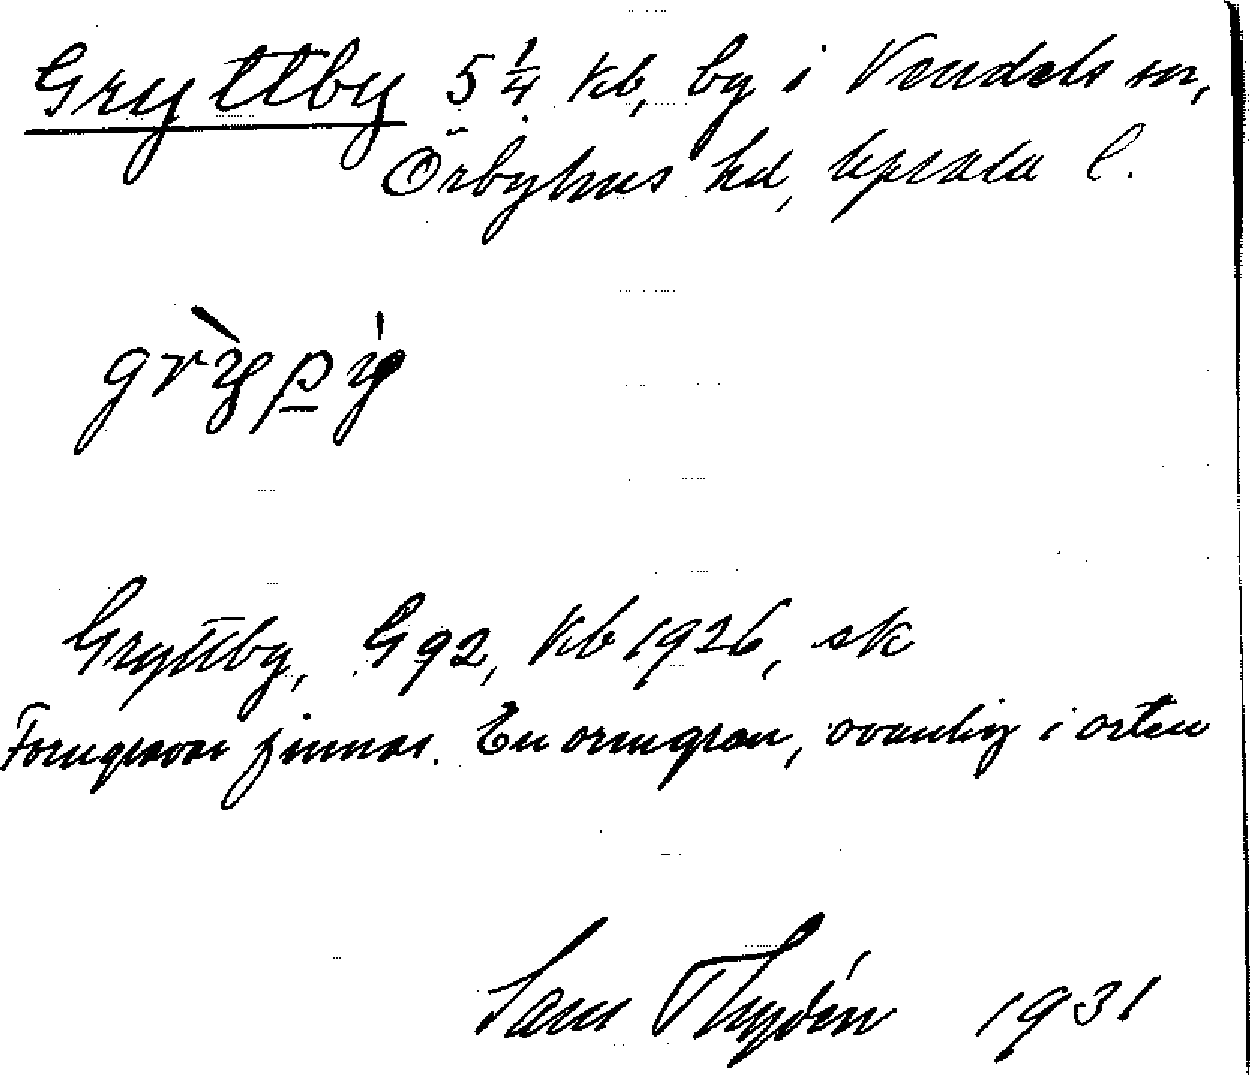 Gryttby 5 1/4 kb, by i Vendels sn,
Örbyhus hd, Upsala l.
Gryttby, G 92, kb 1926, sk
Forngravar finnas. En ormgran, ovanlig i orten
Sam Thydén 1931